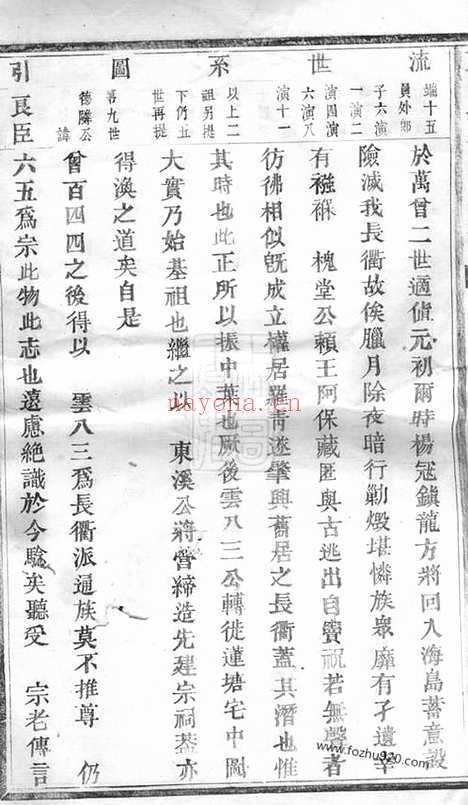 流世系圖引
端十五
員外郎
子六演
一演二
演四演
六演八
演十一
以上二
祖另提
下仍五
世再提
喜九世
德隣公
諱
良臣
於萬曾二世適値元初爾時楊冦鎮龍方將回入海島蓄意設
險滅我長衢故俟臘月除夜暗行勦燬堪憐族衆靡有孑遺幸
有襁褓 槐堂公賴王阿保藏匿與古逃出自竇祝若無聲者
彷彿相似旣成立權居羅靑遂肇興舊居之長衢蓋其潛也惟
其時也此正所以振中葉也厥後雲八三公轉徙蓮塘宅中圖
大實乃始基祖也繼之以 東溪公將營締造先建宗祠葢亦
得渙之道矣自是
曾百四四之後得以 雲八三爲長衢派通族莫不推尊 仍
六五爲宗此物此志也遠慮絶識於今騐矣聽受 宗老傳言
nayona.cn
www.fozhu920.com